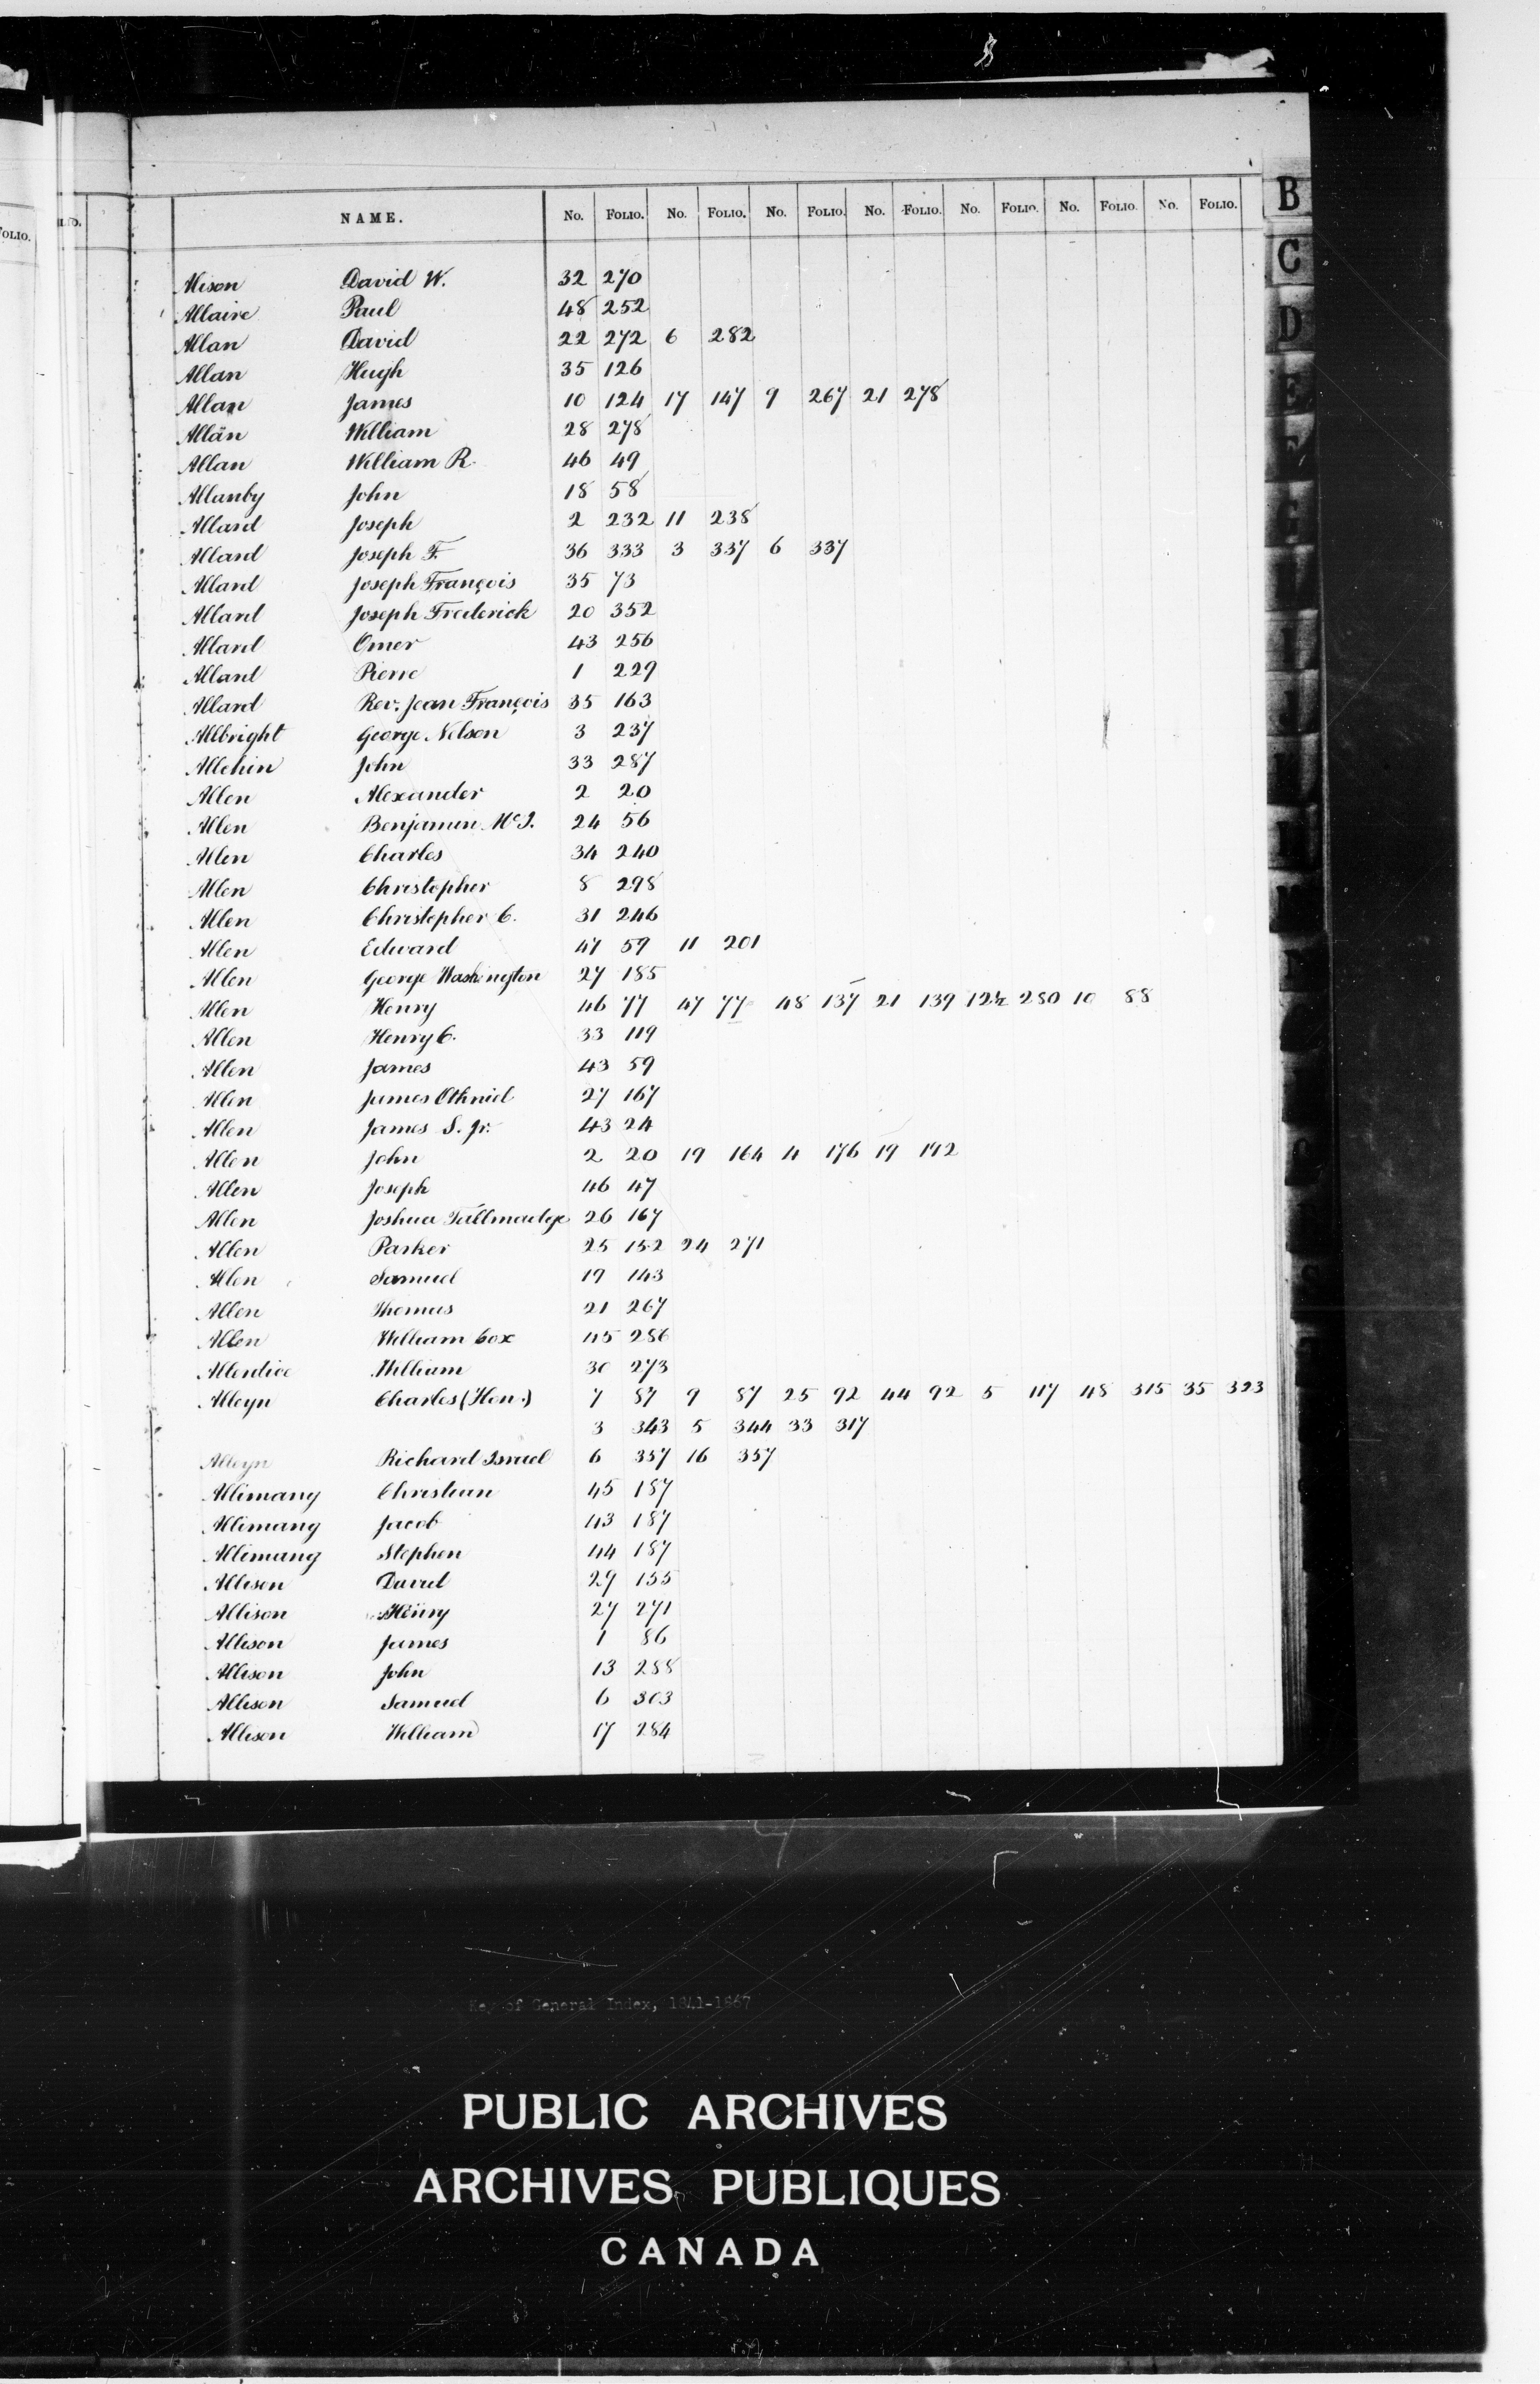 8
FOLIO.
NAME. No. FOLIO. No. FOLIO. No. FOLIO. No. FOLIO. No. FOLIO. No. FOLIO. No. FOLIO.
Alison David W. 32 270
Allaire Paul 48 252
Allan David 22 272 6 282
Allan Hugh 35 126
Allan James 10 124 17 147 9 267 21 278
Allan William 28 278
Allan William R. 46 49
Allanby John 18 58
Allard Joseph 2 232 11 238
Allard Joseph F. 36 333 3 337 6 337
Allard Joseph François 35 73
Allard Joseph Frederick 20 352
Allard Omer 43 256
Allard Pierre 1 229
Allard Rev. Jean François 35 163
Allbright George Nelson 3 237
Allchin John 33 287
Allen Alexander 2 20
Allen Benjamin McI. 24 56
Allen Charles 34 240
Allen Christopher 8 298
Allen Christopher C. 31 246
Allen Edward 47 59 11 201
Allen George Washington 27 185
Allen Henry 46 77 47 77 48 137 21 139 280 10 88
Allen Henry C. 33 119
Allen James 43 59
Allen James Othniel 27 167
Allen James S. Jr. 43 24
Allen John 2 20 19 164 4 176 19 192
Allen Joseph 46 47
Allen Joshua Tallmadge 26 167
Allen Parker 25 152 24 271
Allen Samuel 19 143
Allen Thomas 21 267
Allen William Cox 45 286
Allendice William 30 273
Alleyn Charles (Hon.) 7 87 9 87 25 92 44 92 5 117 48 315 35 323
3 343 5 344 33 317
Alleyn Richard Israel 6 357 16 357
Allimany Christian 45 187
Allimang Jacob 43 187
Allimang Stephen 44 187
Allison David 29 155
Allison Henry 27 271
Allison James 1 86
Allison John 13 288
Allison Samuel 6 303
Allison William 17 284
B
C
D
E
F
G
Key of General Index, 1841-1867
PUBLIC ARCHIVES
ARCHIVES PUBLIQUES
CANADA